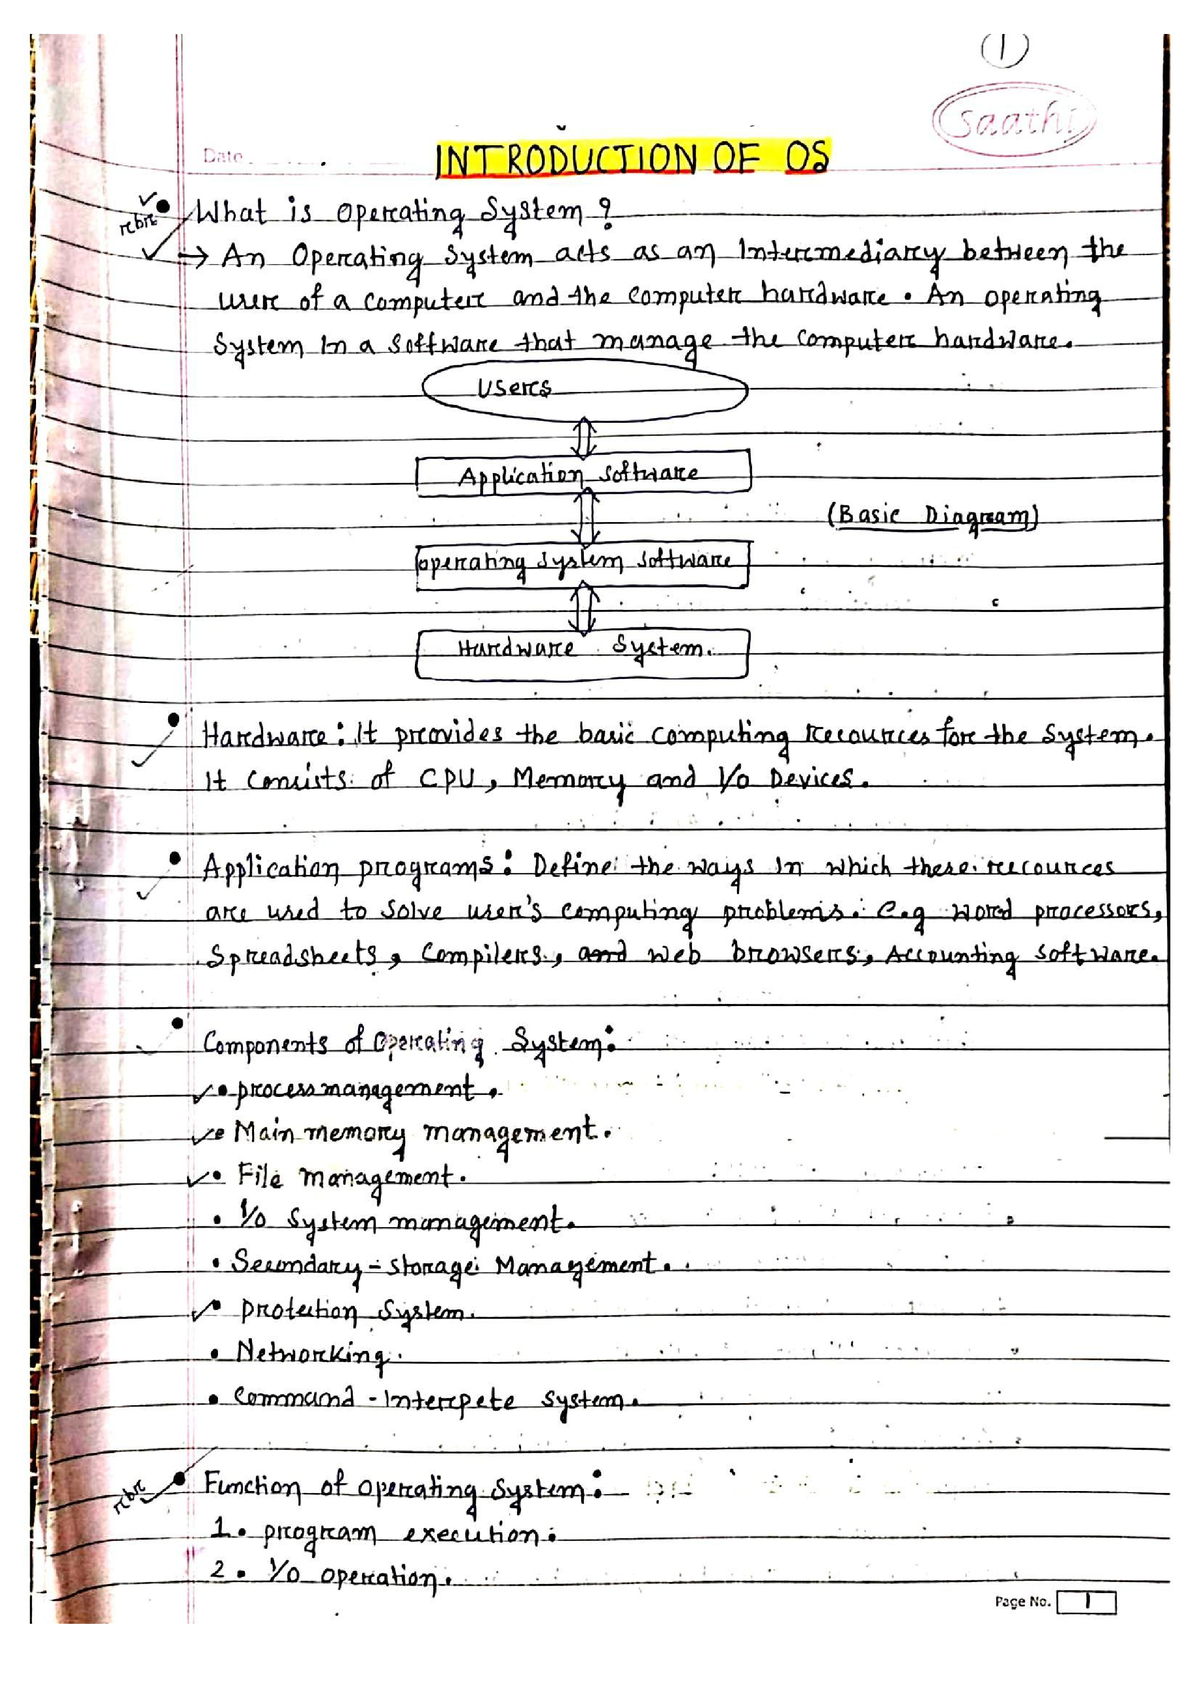 1
Saathi
Date
INTRODUCTION OF OS
What is Operating System ?
→ An Operating System acts as an Intermediary between the
user of a computer and the computer hardware. An operating
System In a Software that manage the computer hardware.
Users
Application Software
(Basic Diagram)
operating System Software
Hardware System.
Hardware : It provides the basic computing recources for the System.
It consists of CPU, Memory and I/O Devices.
Application programs : Define the ways In which these recources
are used to Solve user's computing problems. e.g Word processors,
Spreadsheets, Compilers, and web browsers, Accounting Software.
Components of Operating System:
• process management.
• Main memory management.
• File Management.
• I/O System management.
• Secondary-storage Management.
• Protection System.
• Networking.
• Command-Interpete System.
Function of operating System:
1. program execution.
2. I/O operation.
Page No. 1